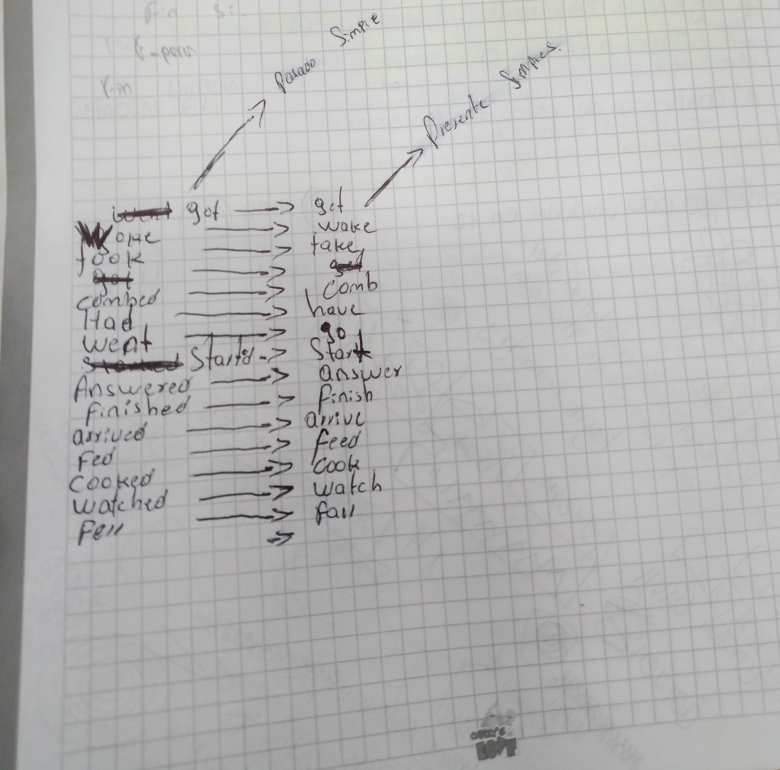 Pasado Simple
Presente Simples
got → get
Woke → wake
took → take
combed → comb
Had → have
went → go
Started → Start
Answered → answer
finished → finish
arrived → arrive
fed → feed
cooked → cook
watched → watch
fell → fall
LOVE